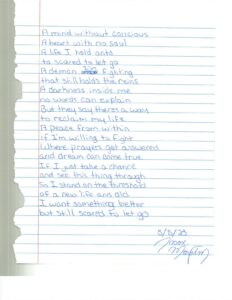 A mind without concious
A heart with no soul
A life I hold onto
to scared to let go
A demon fighting
that still holds the reins
A darkness inside me
no words can explain
But they say theres a way
to reclaim my life
A peace from within
if I'm willing to fight
Where prayers get answered
and dream can come true
If I just take a chance
and see this thing through
So I stand on the threshold
of a new life and old
I want something better
but still scared to let go